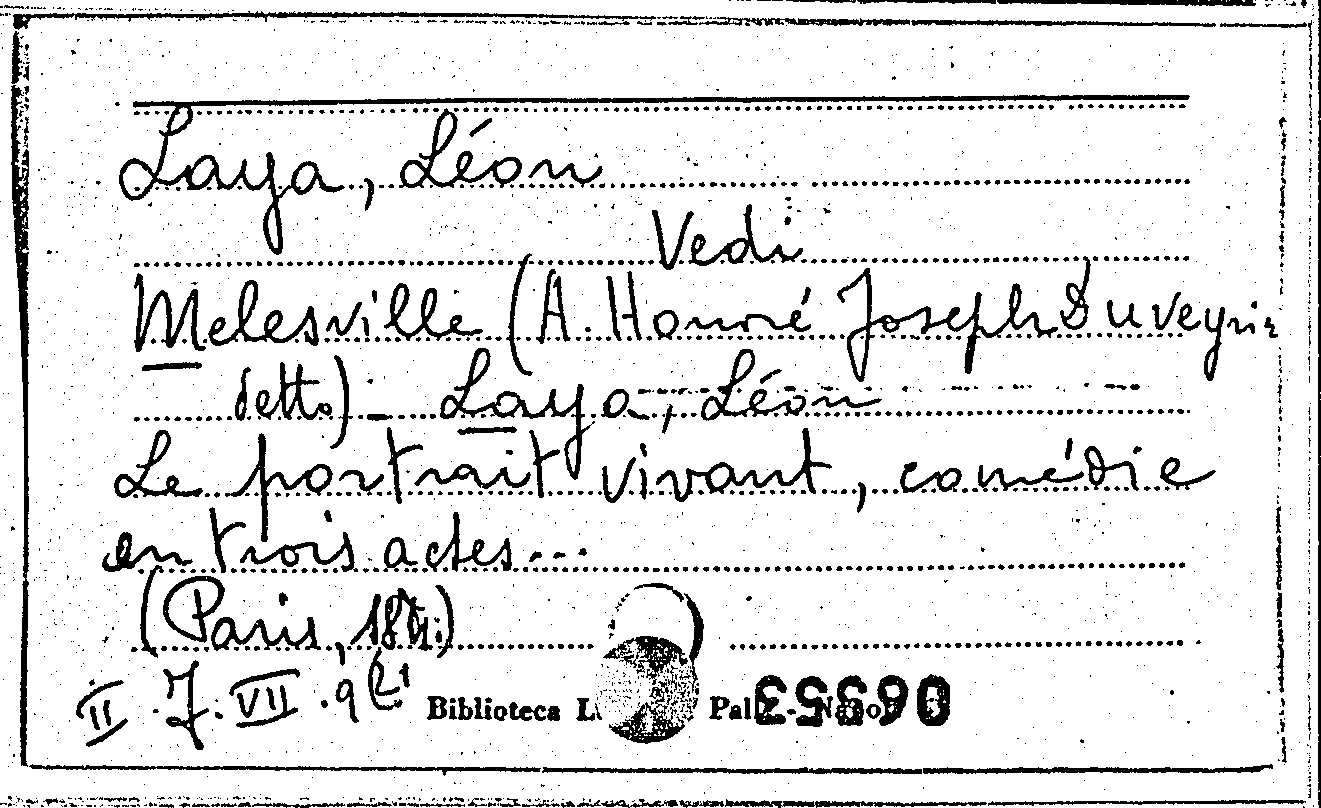 Laya, Léon
Vedi
Melesville (A. Honoré Joseph Duveyrier
detto) - Laya, Léon
Le portrait vivant, comédie
en trois actes...
(Paris,
II. J. VII. 9
Biblioteca Pal
06953